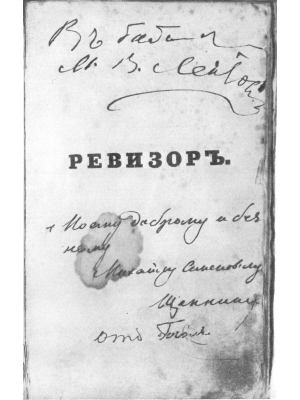 Въ
М. В.
РЕВИЗОРЪ.
Моему доброму и без
ному
Михайлу Семеновичу
Щепкину
отъ Гоголя